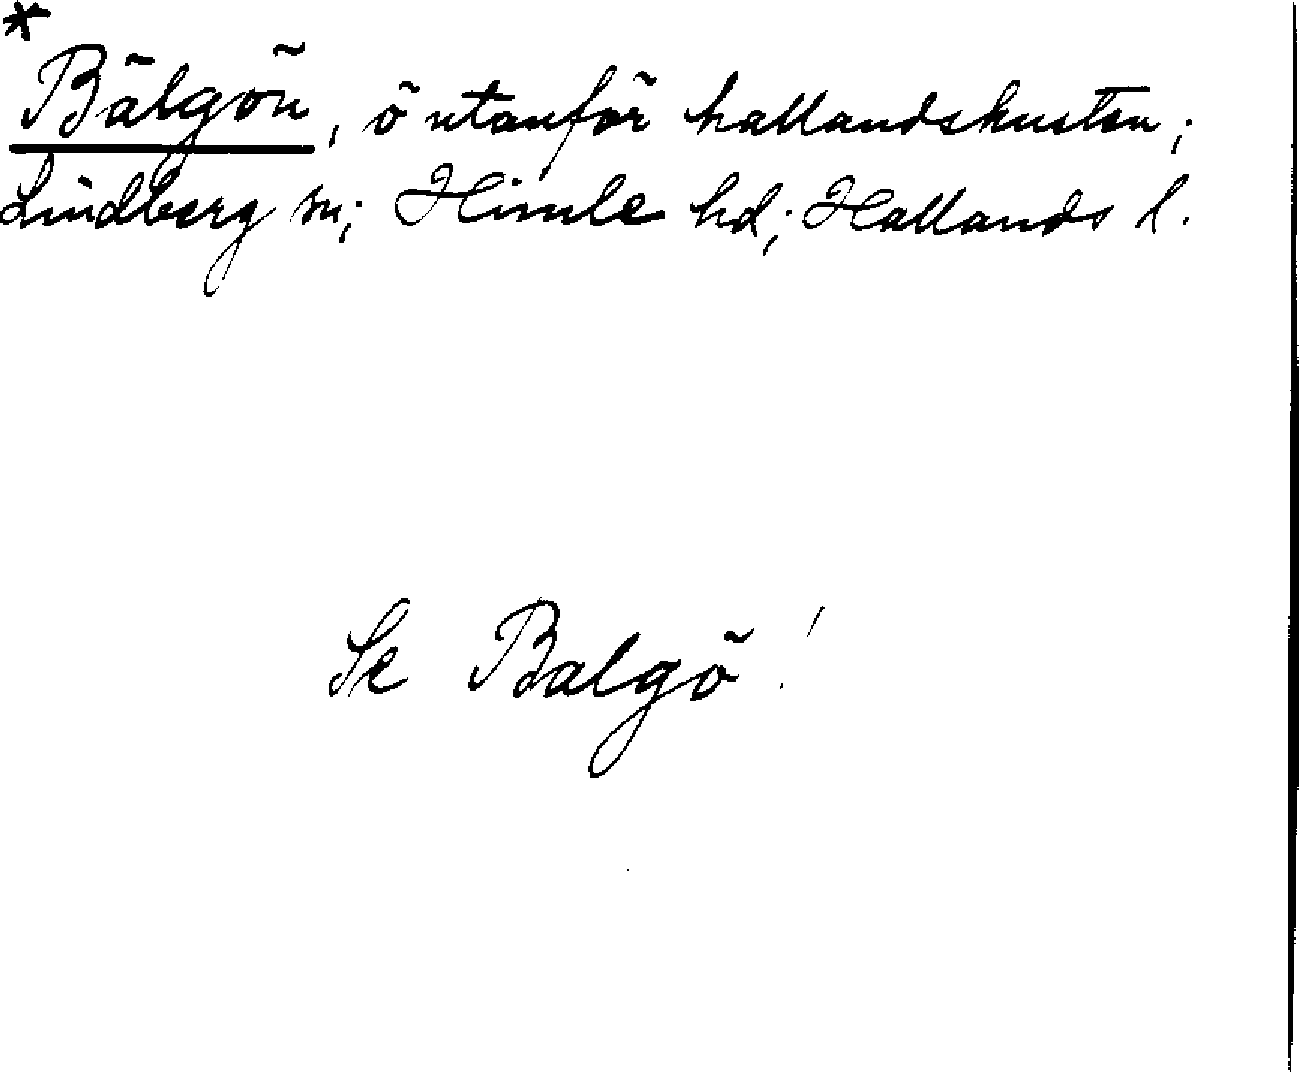 *
Bälgön, ö utanför hallandskusten;
Lindberg sn; Himle hd; Hallands l.
Se Balgö!